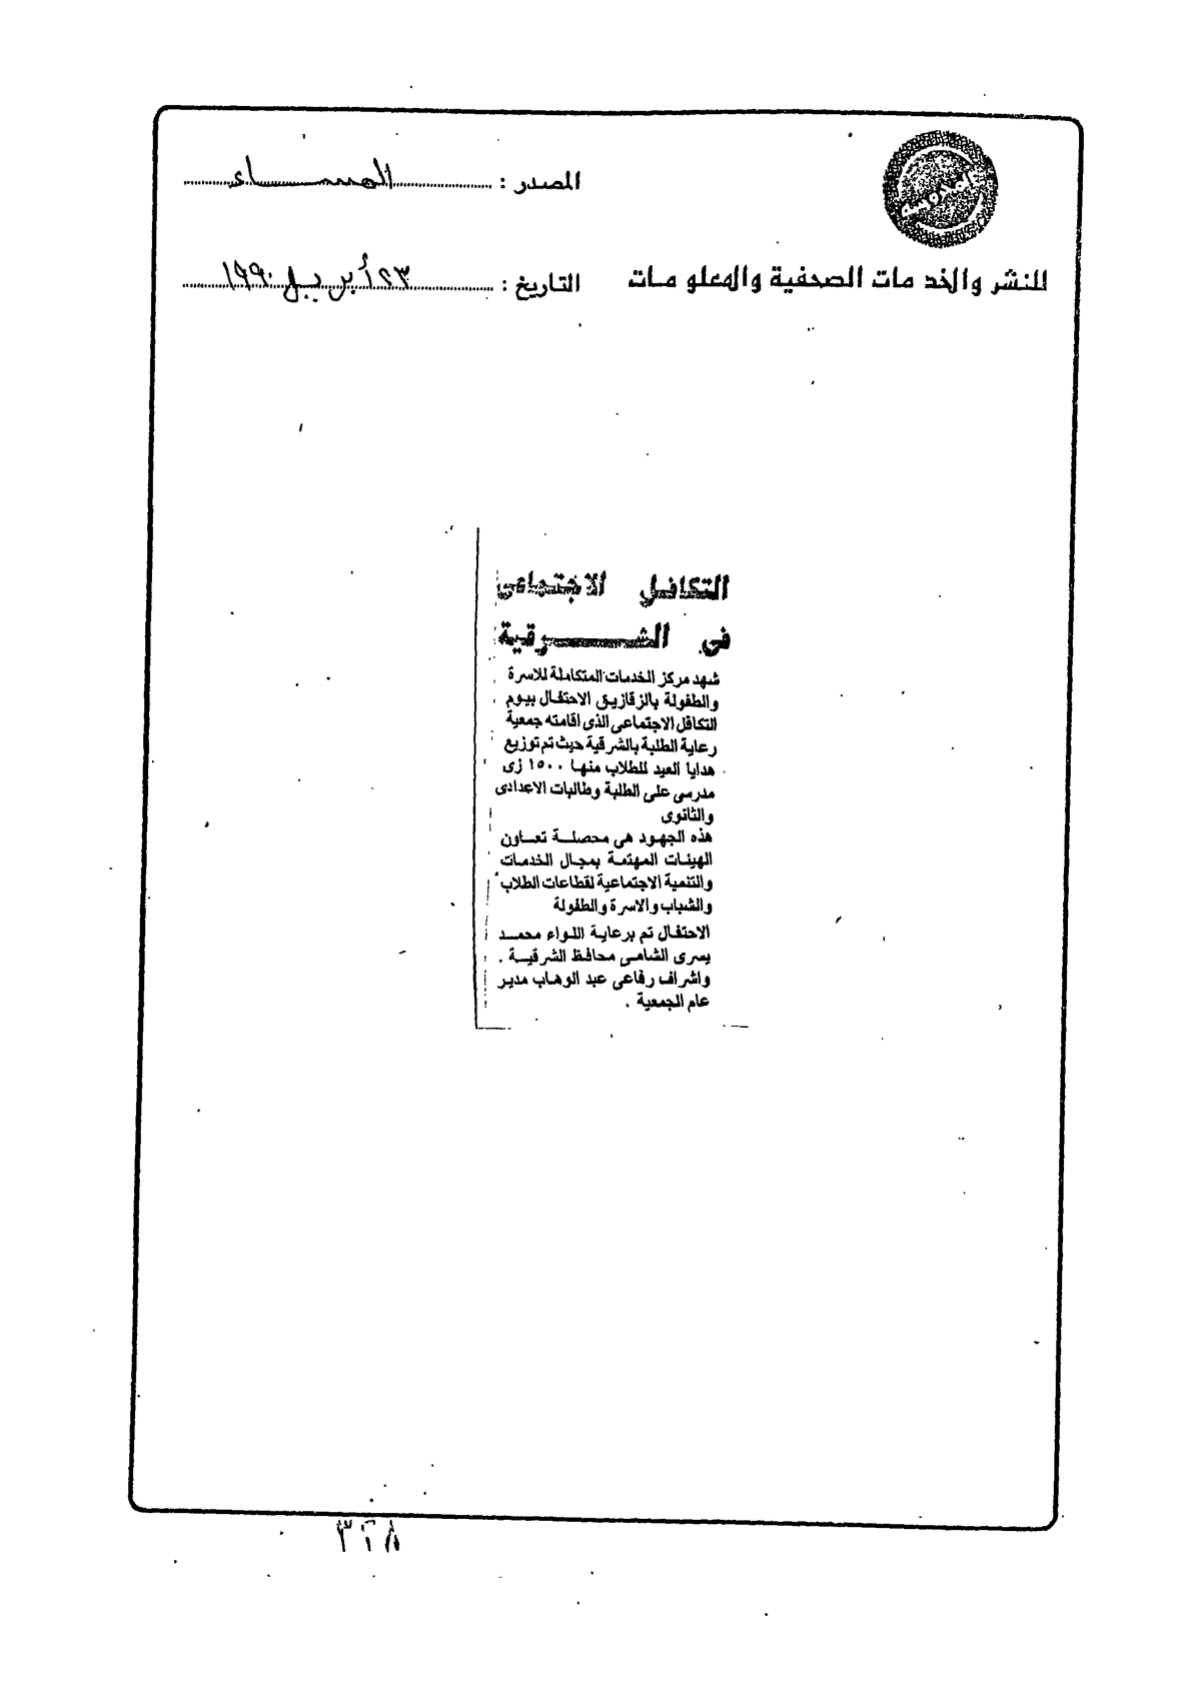 المصدر : المساء
للنشر والخدمات الصحفية والمعلومات
التاريخ : ٢٣ أبريل ١٩٩٠
التكافل الاجتماعى
فى الشرقية
شهد مركز الخدمات المتكاملة للاسرة
والطفولة بالزقازيق الاحتفال بيوم
التكافل الاجتماعى الذى اقامته جمعية
رعاية الطلبة بالشرقية حيث تم توزيع
هدايا العيد للطلاب منها ١٥٠٠ زى
مدرسى على الطلبة وطالبات الاعدادى
والثانوى
هذه الجهود هى محصلة تعاون
الهيئات المهتمة بمجال الخدمات
والتنمية الاجتماعية لقطاعات الطلاب
والشباب والاسرة والطفولة
الاحتفال تم برعاية اللواء محمد
يسرى الشامى محافظ الشرقية .
واشراف رفاعى عبد الوهاب مدير
عام الجمعية .